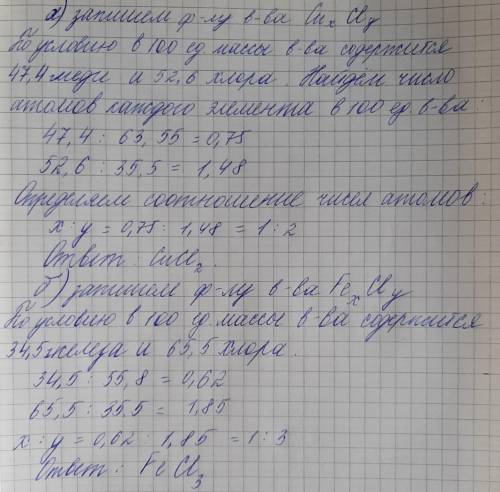 а) запишем ф-лу в-ва CuxCly
По условию в 100 ед массы в-ва содержится
47,4 меди и 52,6 хлора. Найдём число
атомов каждого элемента в 100 ед. в-ва:
47,4 : 63,55 = 0,75
52,6 : 35,5 = 1,48
Определяем соотношение чисел атомов:
x : y = 0,75 : 1,48 = 1 : 2
Ответ: CuCl2.
б) запишем ф-лу в-ва FexCly
По условию в 100 ед массы в-ва содержится
34,5 железа и 65,5 хлора.
34,5 : 55,8 = 0,62
65,5 : 35,5 = 1,85
x : y = 0,62 : 1,85 = 1 : 3
Ответ: FeCl3